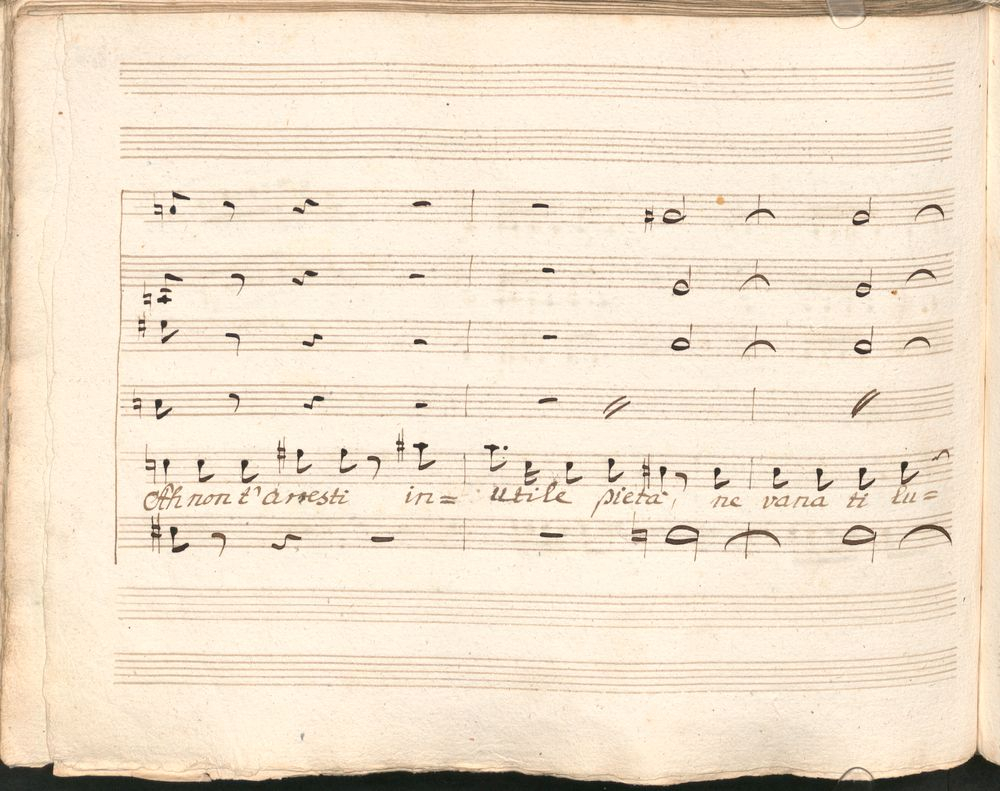 Ah non t'arresti in= utile pietà, ne vana ti lu=